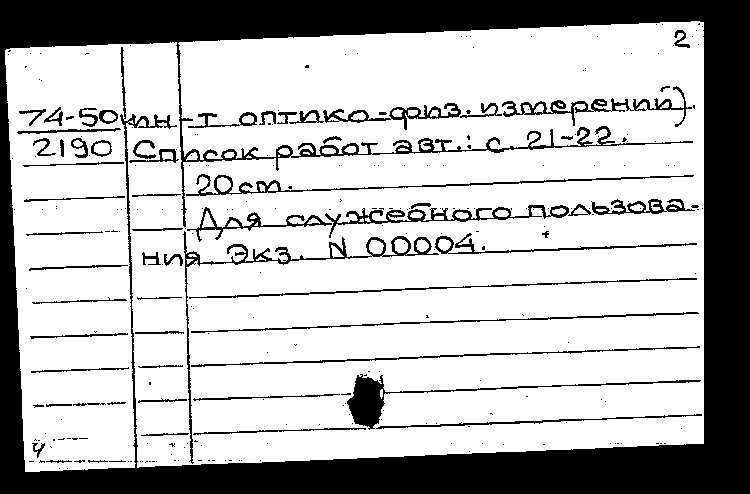 2
74-50 ин-т оптико-физ. измерений).
2190 Список работ авт.: с. 21-22.
20 см.
Для служебного пользова-
ния. Экз. N 00004.
4